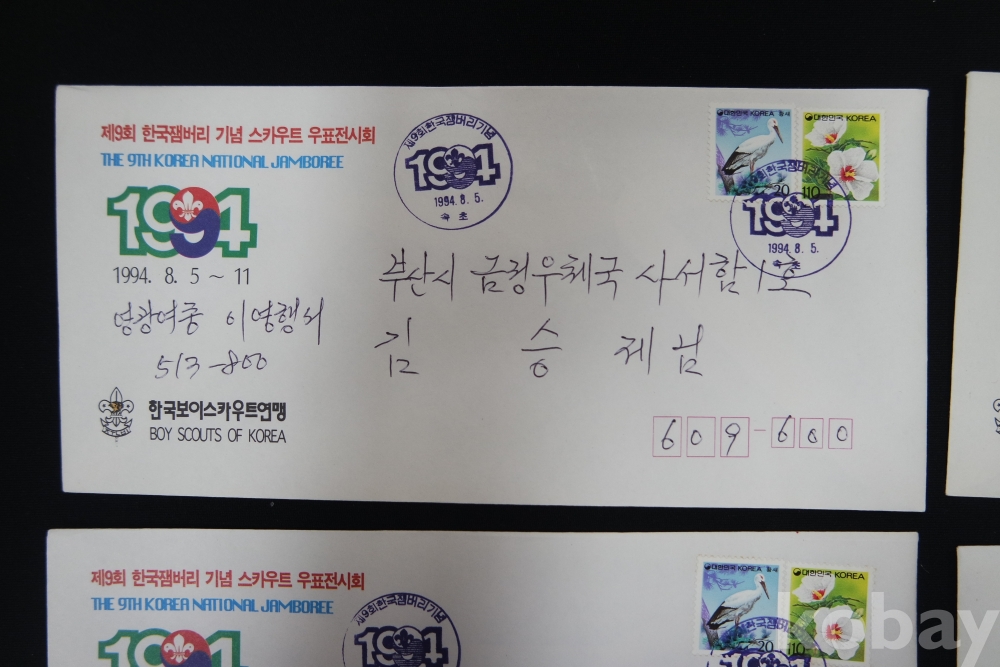 제9회 한국잼버리 기념 스카우트 우표전시회
THE 9TH KOREA NATIONAL JAMBOREE
1994
1994. 8. 5 ~ 11
영광여중 이영행서
513-800
한국보이스카우트연맹
BOY SCOUTS OF KOREA
제9회한국잼버리기념
1994
1994. 8. 5.
속초
대한민국 KOREA 황새
20
대한민국 KOREA
110
제9회한국잼버리기념
1994
1994. 8. 5.
속초
부산시 금정우체국 사서함 1호
김 승 제 님
609-600
제9회 한국잼버리 기념 스카우트 우표전시회
THE 9TH KOREA NATIONAL JAMBOREE
1994
제9회한국잼버리기념
1994
대한민국 KOREA 황새
20
대한민국 KOREA
110
1994
kobay